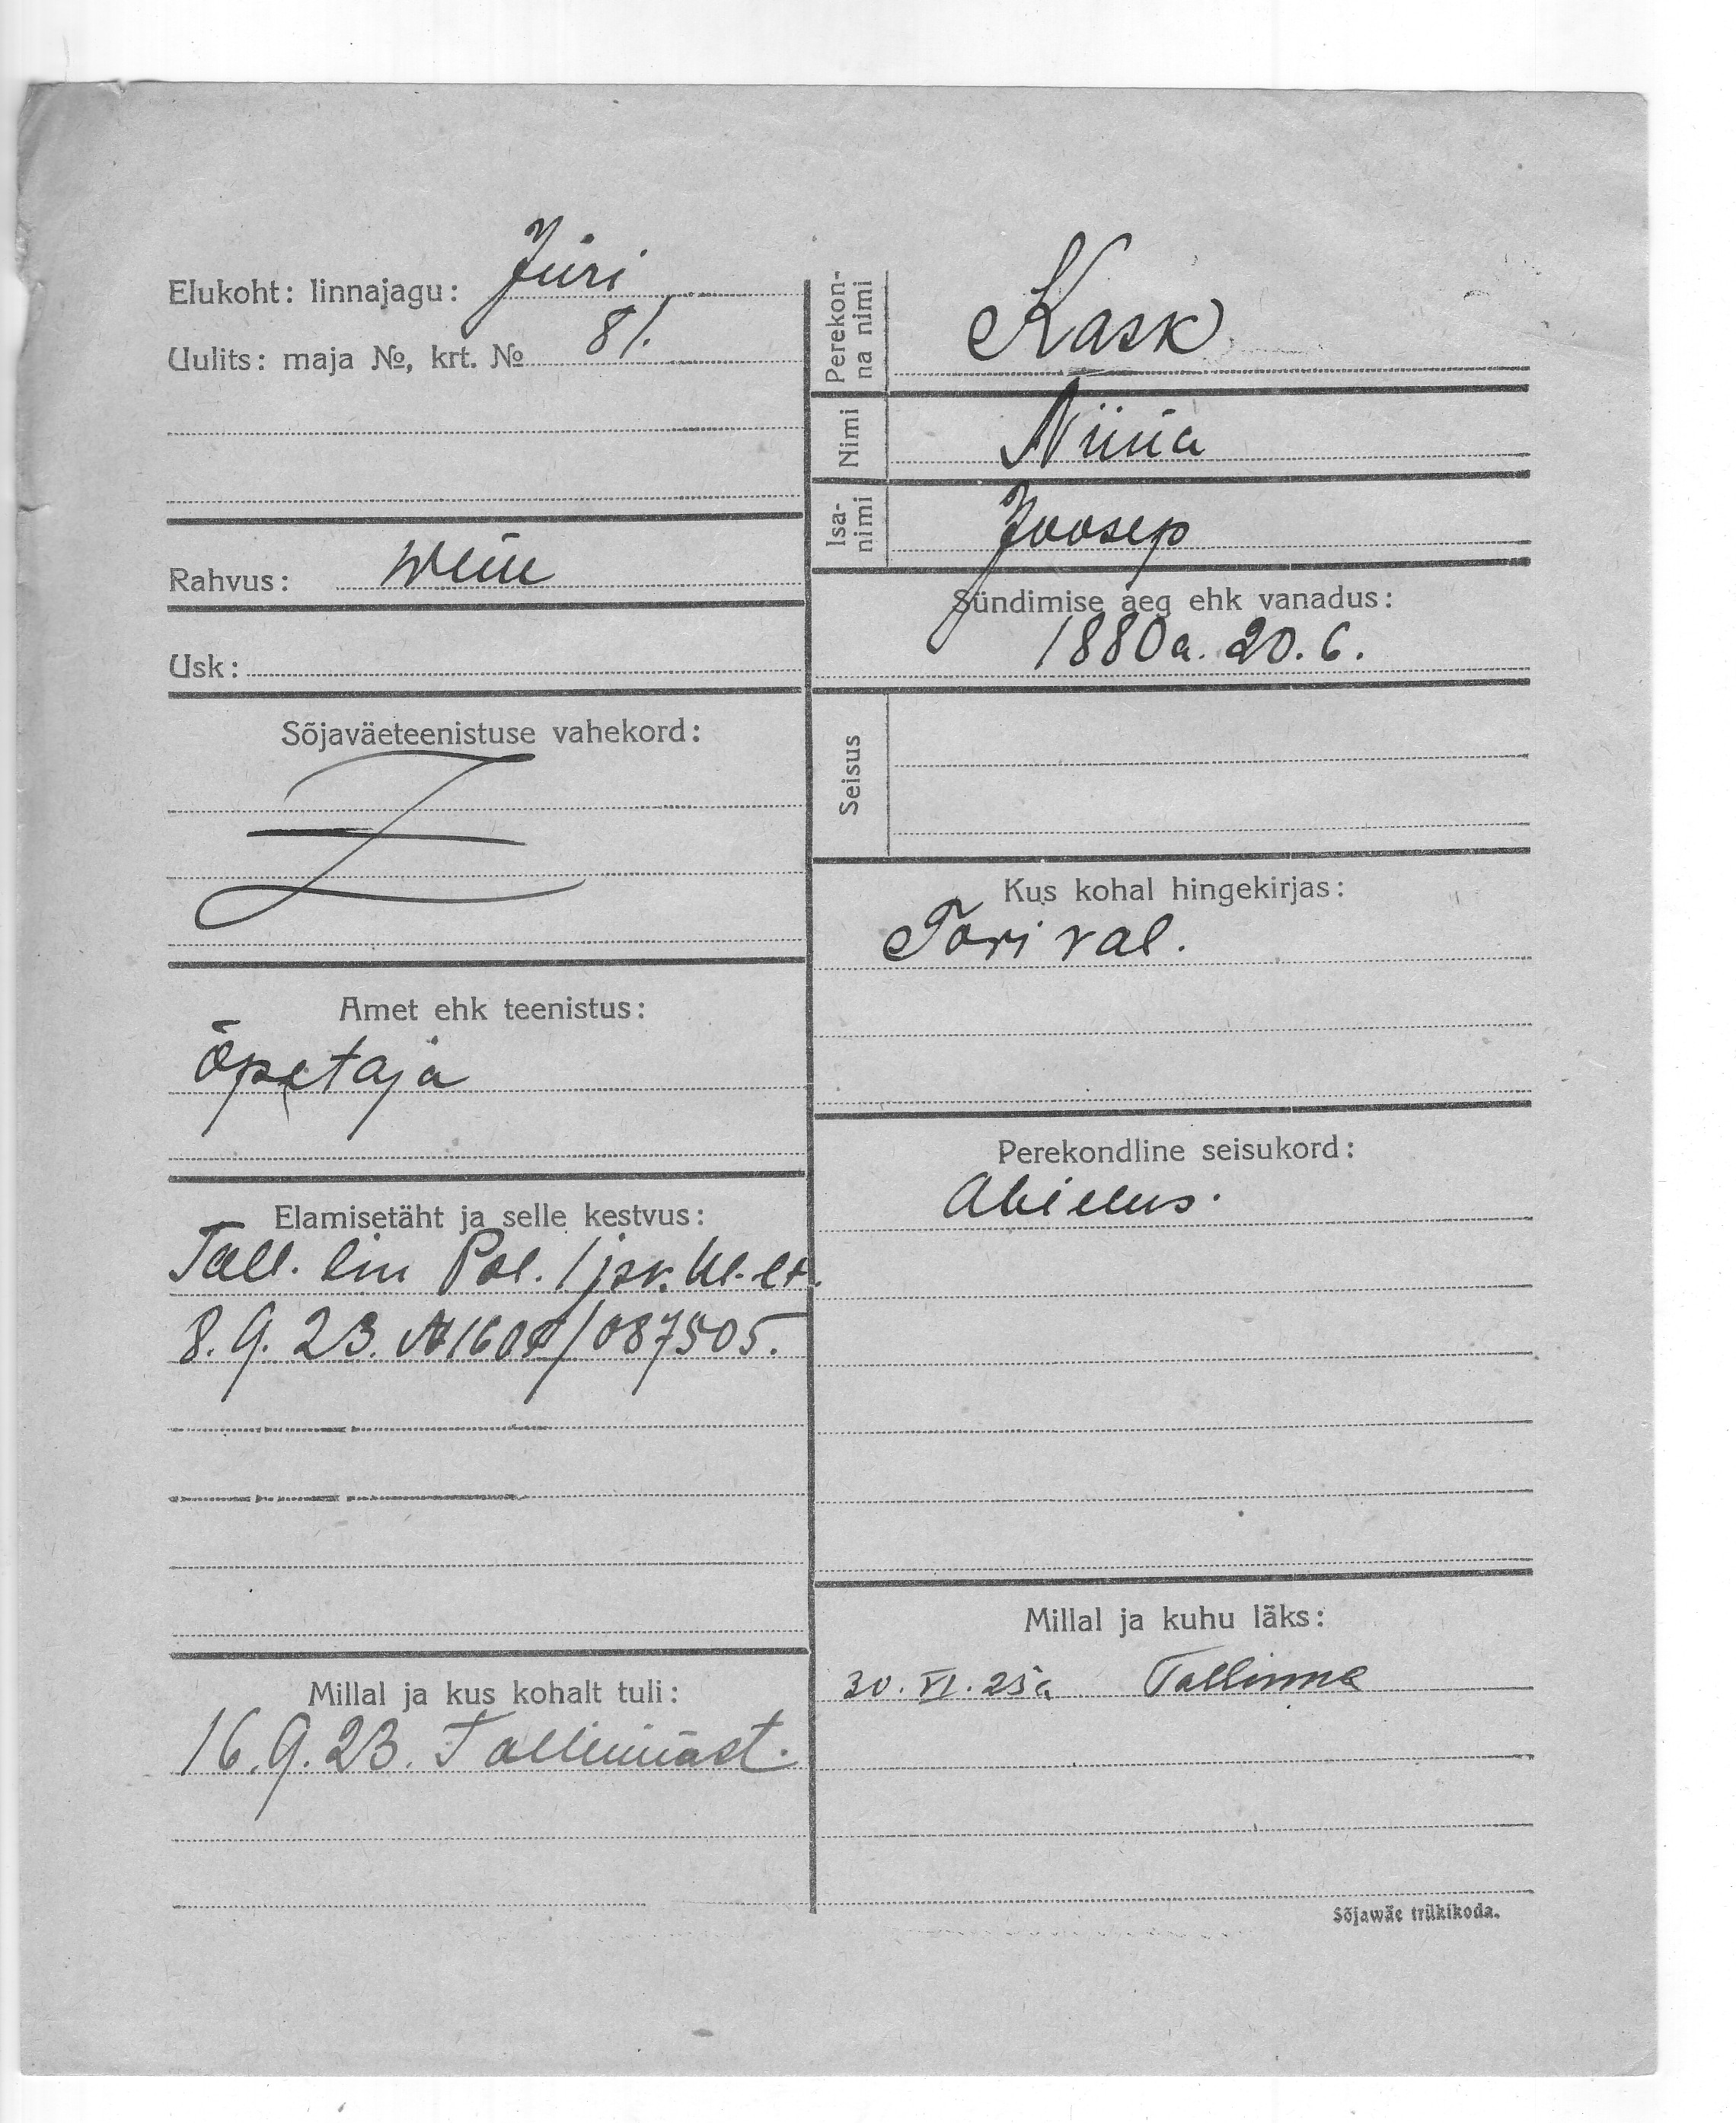 Elukoht: linnajagu: Jüri
Uulits: maja №, krt. № 81.
Rahvus: wene
Usk:
Sõjaväeteenistuse vahekord:
Amet ehk teenistus:
Õpetaja
Elamisetäht ja selle kestvus:
Tall. lin Pol. 1 jsk.
8.9.23. № /087505.
Millal ja kus kohalt tuli:
16.9.23. Tallinnast.
Perekon-
na nimi
Kask
Nimi
Niina
Isa-
nimi
Joosep
Sündimise aeg ehk vanadus:
1880a. 20.6.
Seisus
Kus kohal hingekirjas:
Tori val.
Perekondline seisukord:
Abielus.
Millal ja kuhu läks:
30.VI.25a Tallinna
Sõjawäe trükikoda.